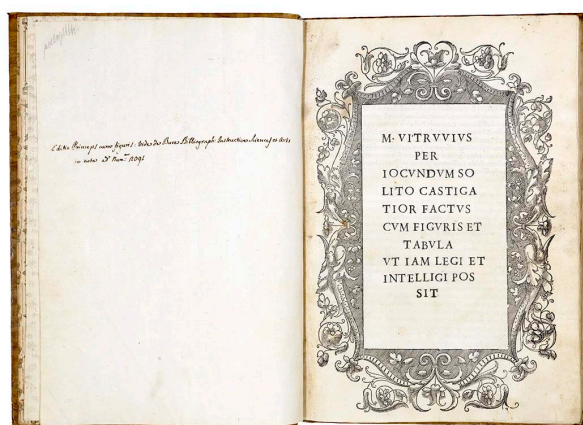 Editio Princeps cum figuris: vide de Bure Bibliograph: Instructive Sciences et Arts
in nota N.º
M. VITRVVIVS
PER
IOCVNDVM SO
LITO CASTIGA
TIOR FACTVS
CVM FIGVRIS ET
TABVLA
VT IAM LEGI ET
INTELLIGI POS
SIT